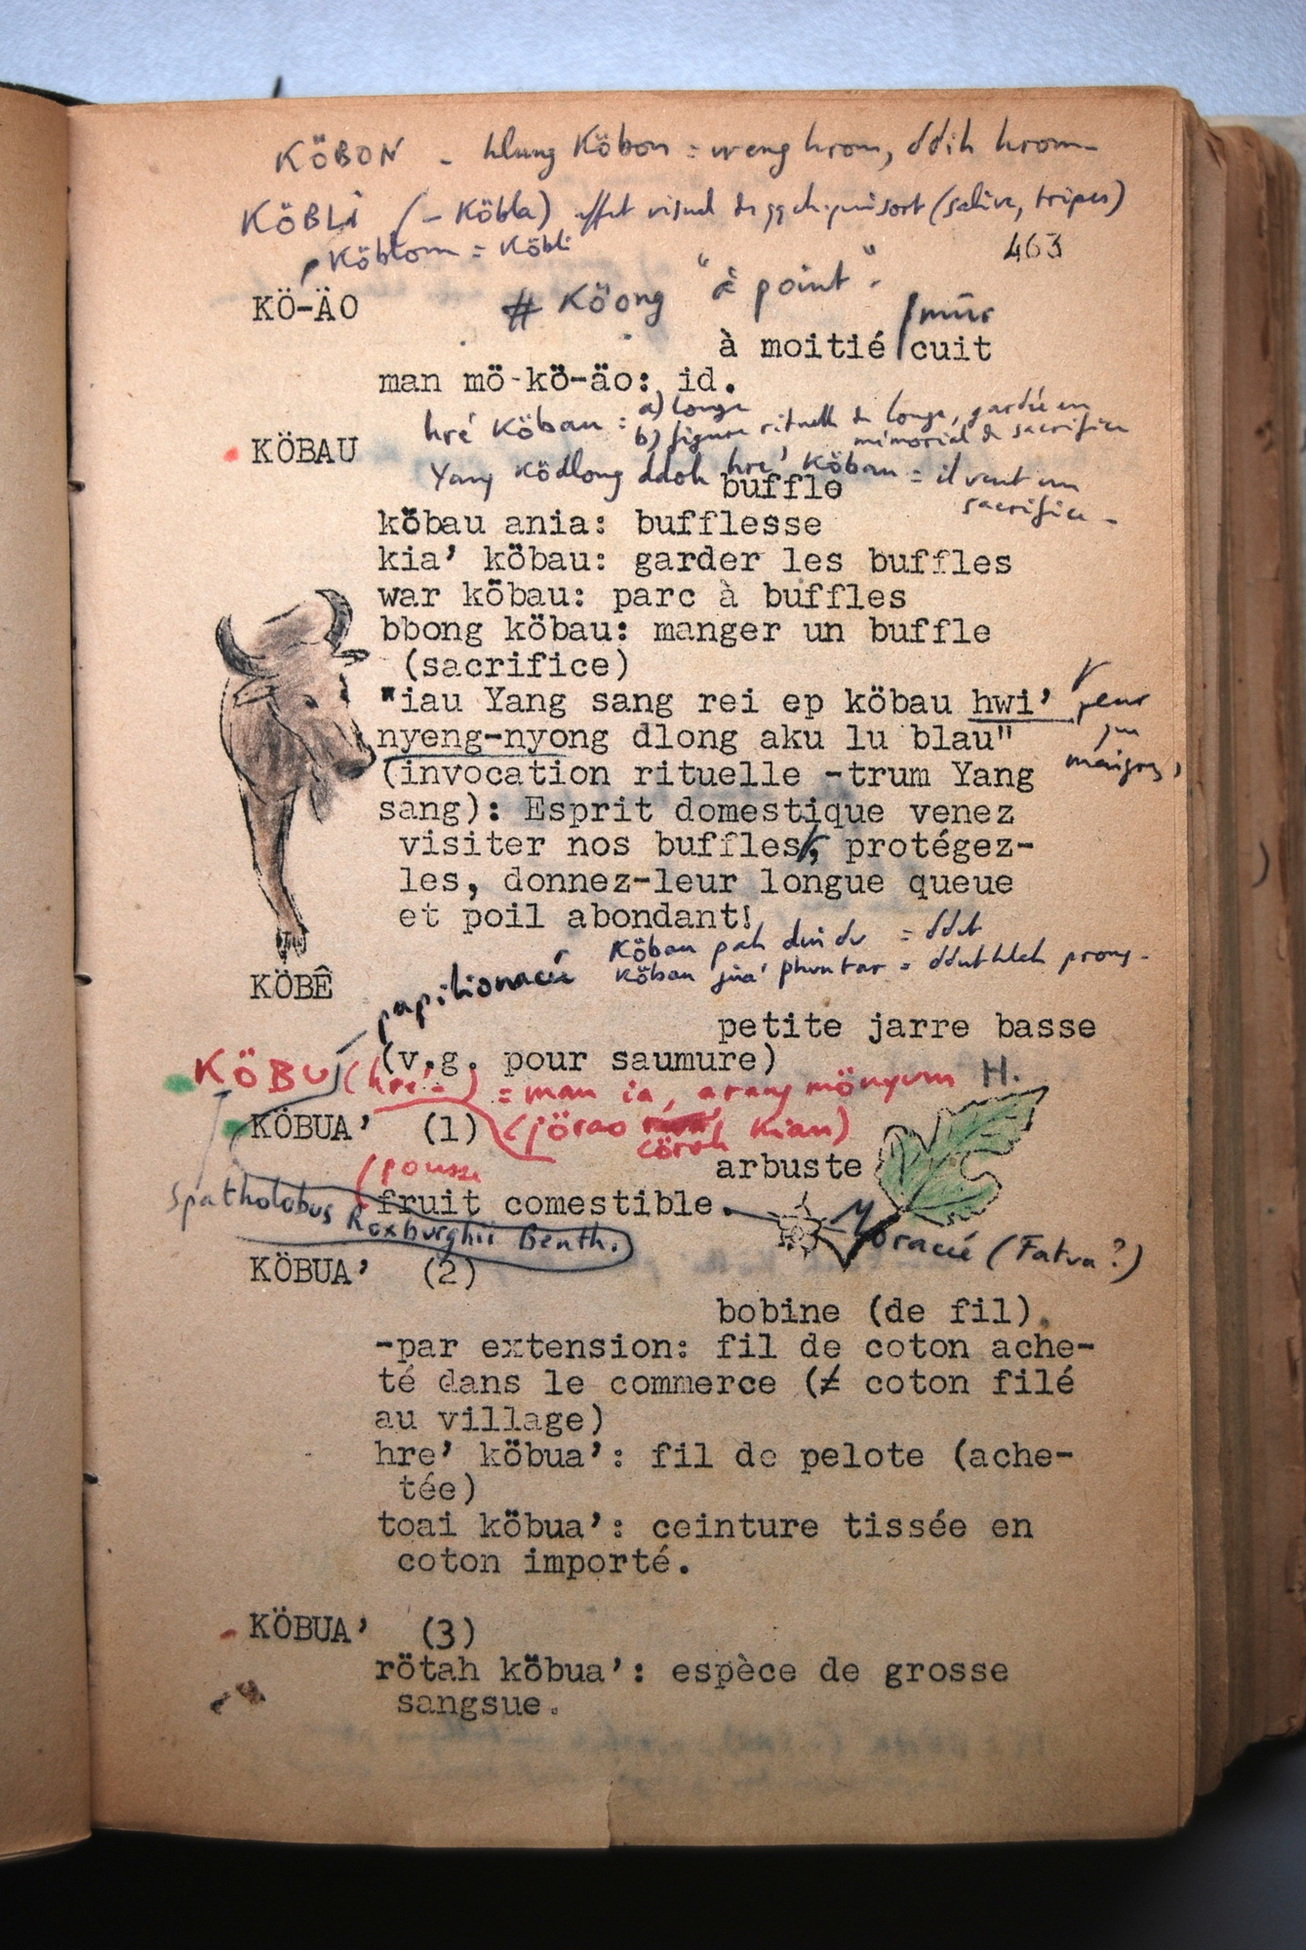 KÖBON - hlung Köbon = weng hrom, ddih hrom
KÖBLI (- Köbla) effet visuel de qq ch. qui sort (salive, tripes)
Köblom = Köbli
463
KÖ-ÄO # Köong "à point".
mûr
à moitié cuit
man mö-kö-äo: id.
hré Köbau = a) longe
b) figure rituelle de longe, gardée en
mémorial de sacrifice
KÖBAU
Yang Ködlong ddoh hre' Köbau = il veut un
sacrifice -
buffle
köbau ania: bufflesse
kia' köbau: garder les buffles
war köbau: parc à buffles
bbong köbau: manger un buffle
(sacrifice)
"iau Yang sang rei ep köbau hwi'
nyeng-nyong dlong aku lu blau"
(invocation rituelle -trum Yang
maigres
sang): Esprit domestique venez
visiter nos buffles, protégez-
les, donnez-leur longue queue
et poil abondant!
Köbau pah = ddut
Köbau phuntar = prong -
KÖBÊ
papilionacée
petite jarre basse
(v.g. pour saumure)
KÖBU (hre'-) = man ia, arang mönyum H.
KÖBUA' (1) (jörao cöroh Kian)
arbuste
(pousse
fruit comestible.
Spatholobus Roxburghii Benth.
Moracée (Fatua?)
KÖBUA' (2)
bobine (de fil).
-par extension: fil de coton ache-
té dans le commerce (≠ coton filé
au village)
hre' köbua': fil de pelote (ache-
tée)
toai köbua': ceinture tissée en
coton importé.
KÖBUA' (3)
rötah köbua': espèce de grosse
sangsue.